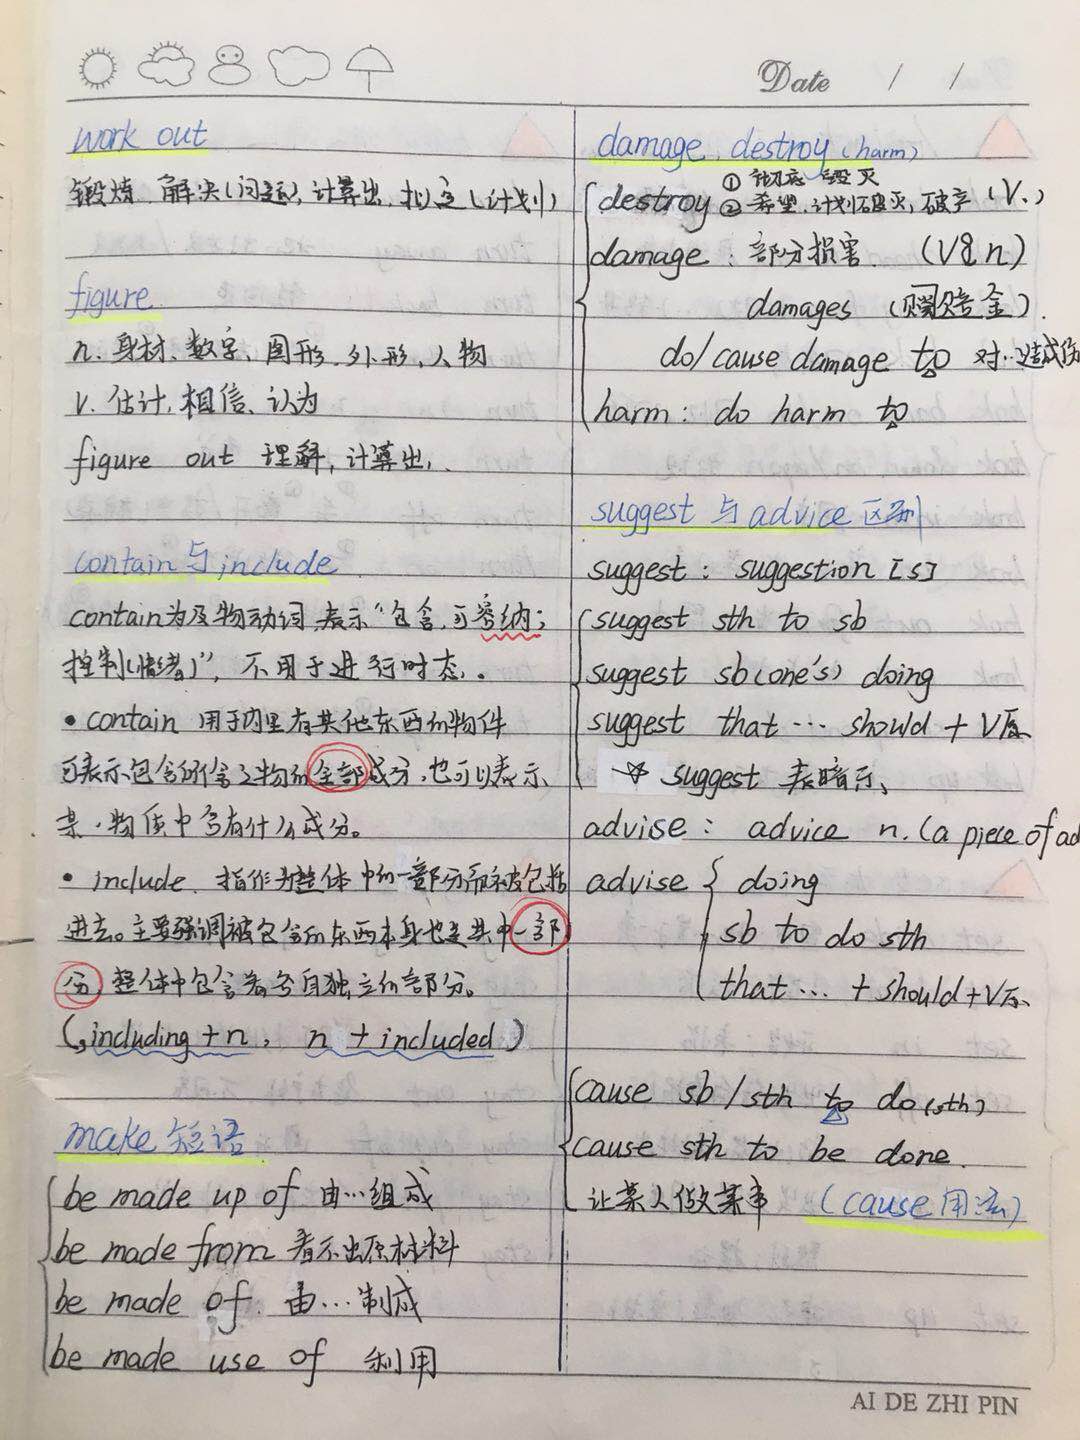 Date / /
work out
锻炼、解决(问题),计算出,拟定(计划)
figure
n. 身材、数字,图形、外形,人物
v. 估计,相信、认为
figure out 理解,计算出,
contain与include
contain为及物动词,表示“包含,可容纳;
控制(情绪)”,不用于进行时态。
• contain 用于内里有其他东西的物件
可表示包含所含之物的全部成分,也可以表示
某一物质中含有什么成分。
• include 指作为整体中的一部分而被包括
进去。主要强调被包含的东西本身也是其中一部
分,整体中包含着各自独立的部分。
(,including + n, n + included)
make 短语
be made up of 由…组成
be made from 看不出原材料
be made of 由…制成
be made use of 利用
damage, destroy (harm)
destroy ①彻底毁灭
②希望、计划破灭,破产 (V.)
damage: 部分损害. (V且n)
damages (赔金).
do/cause damage to 对…造成伤
harm: do harm to
suggest 与 advice 区别
suggest: suggestion [s]
suggest sth to sb
suggest sb(one's) doing
suggest that … should + V原
☆ suggest 表暗示、
advise: advice n. (a piece of ad
advise { doing
sb to do sth
that … + should + V原
cause sb / sth to do (sth)
cause sth to be done.
让某人做某事 (cause用法)
AI DE ZHI PIN